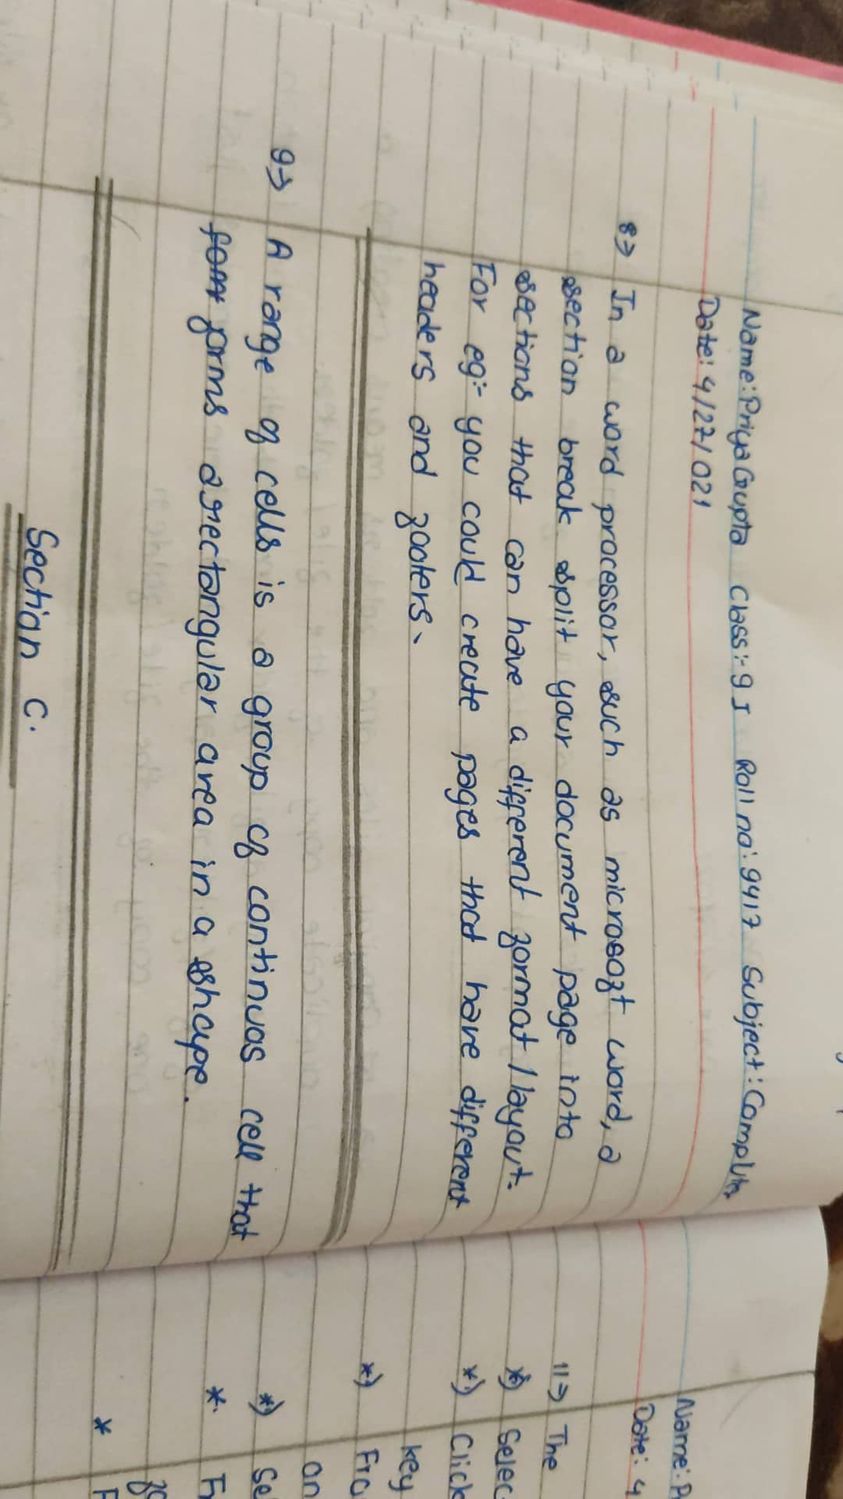 Name: Priya Gupta Class:- 9 I Roll no: 9417 Subject: Computer
Date: 4/27/021
8→ In a word processor, such as microsoft word, a
section break split your document page into
sections that can have a different format / layout.
For eg:- you could create pages that have different
headers and footers.
9→ A range of cells is a group of continuas cell that
forms a rectangular area in a shape.
Section C.
Name: P
Date: 4
11→ The
*) Selec
*) Click
key
*) Fro
an
*) Se
*. Fr
*